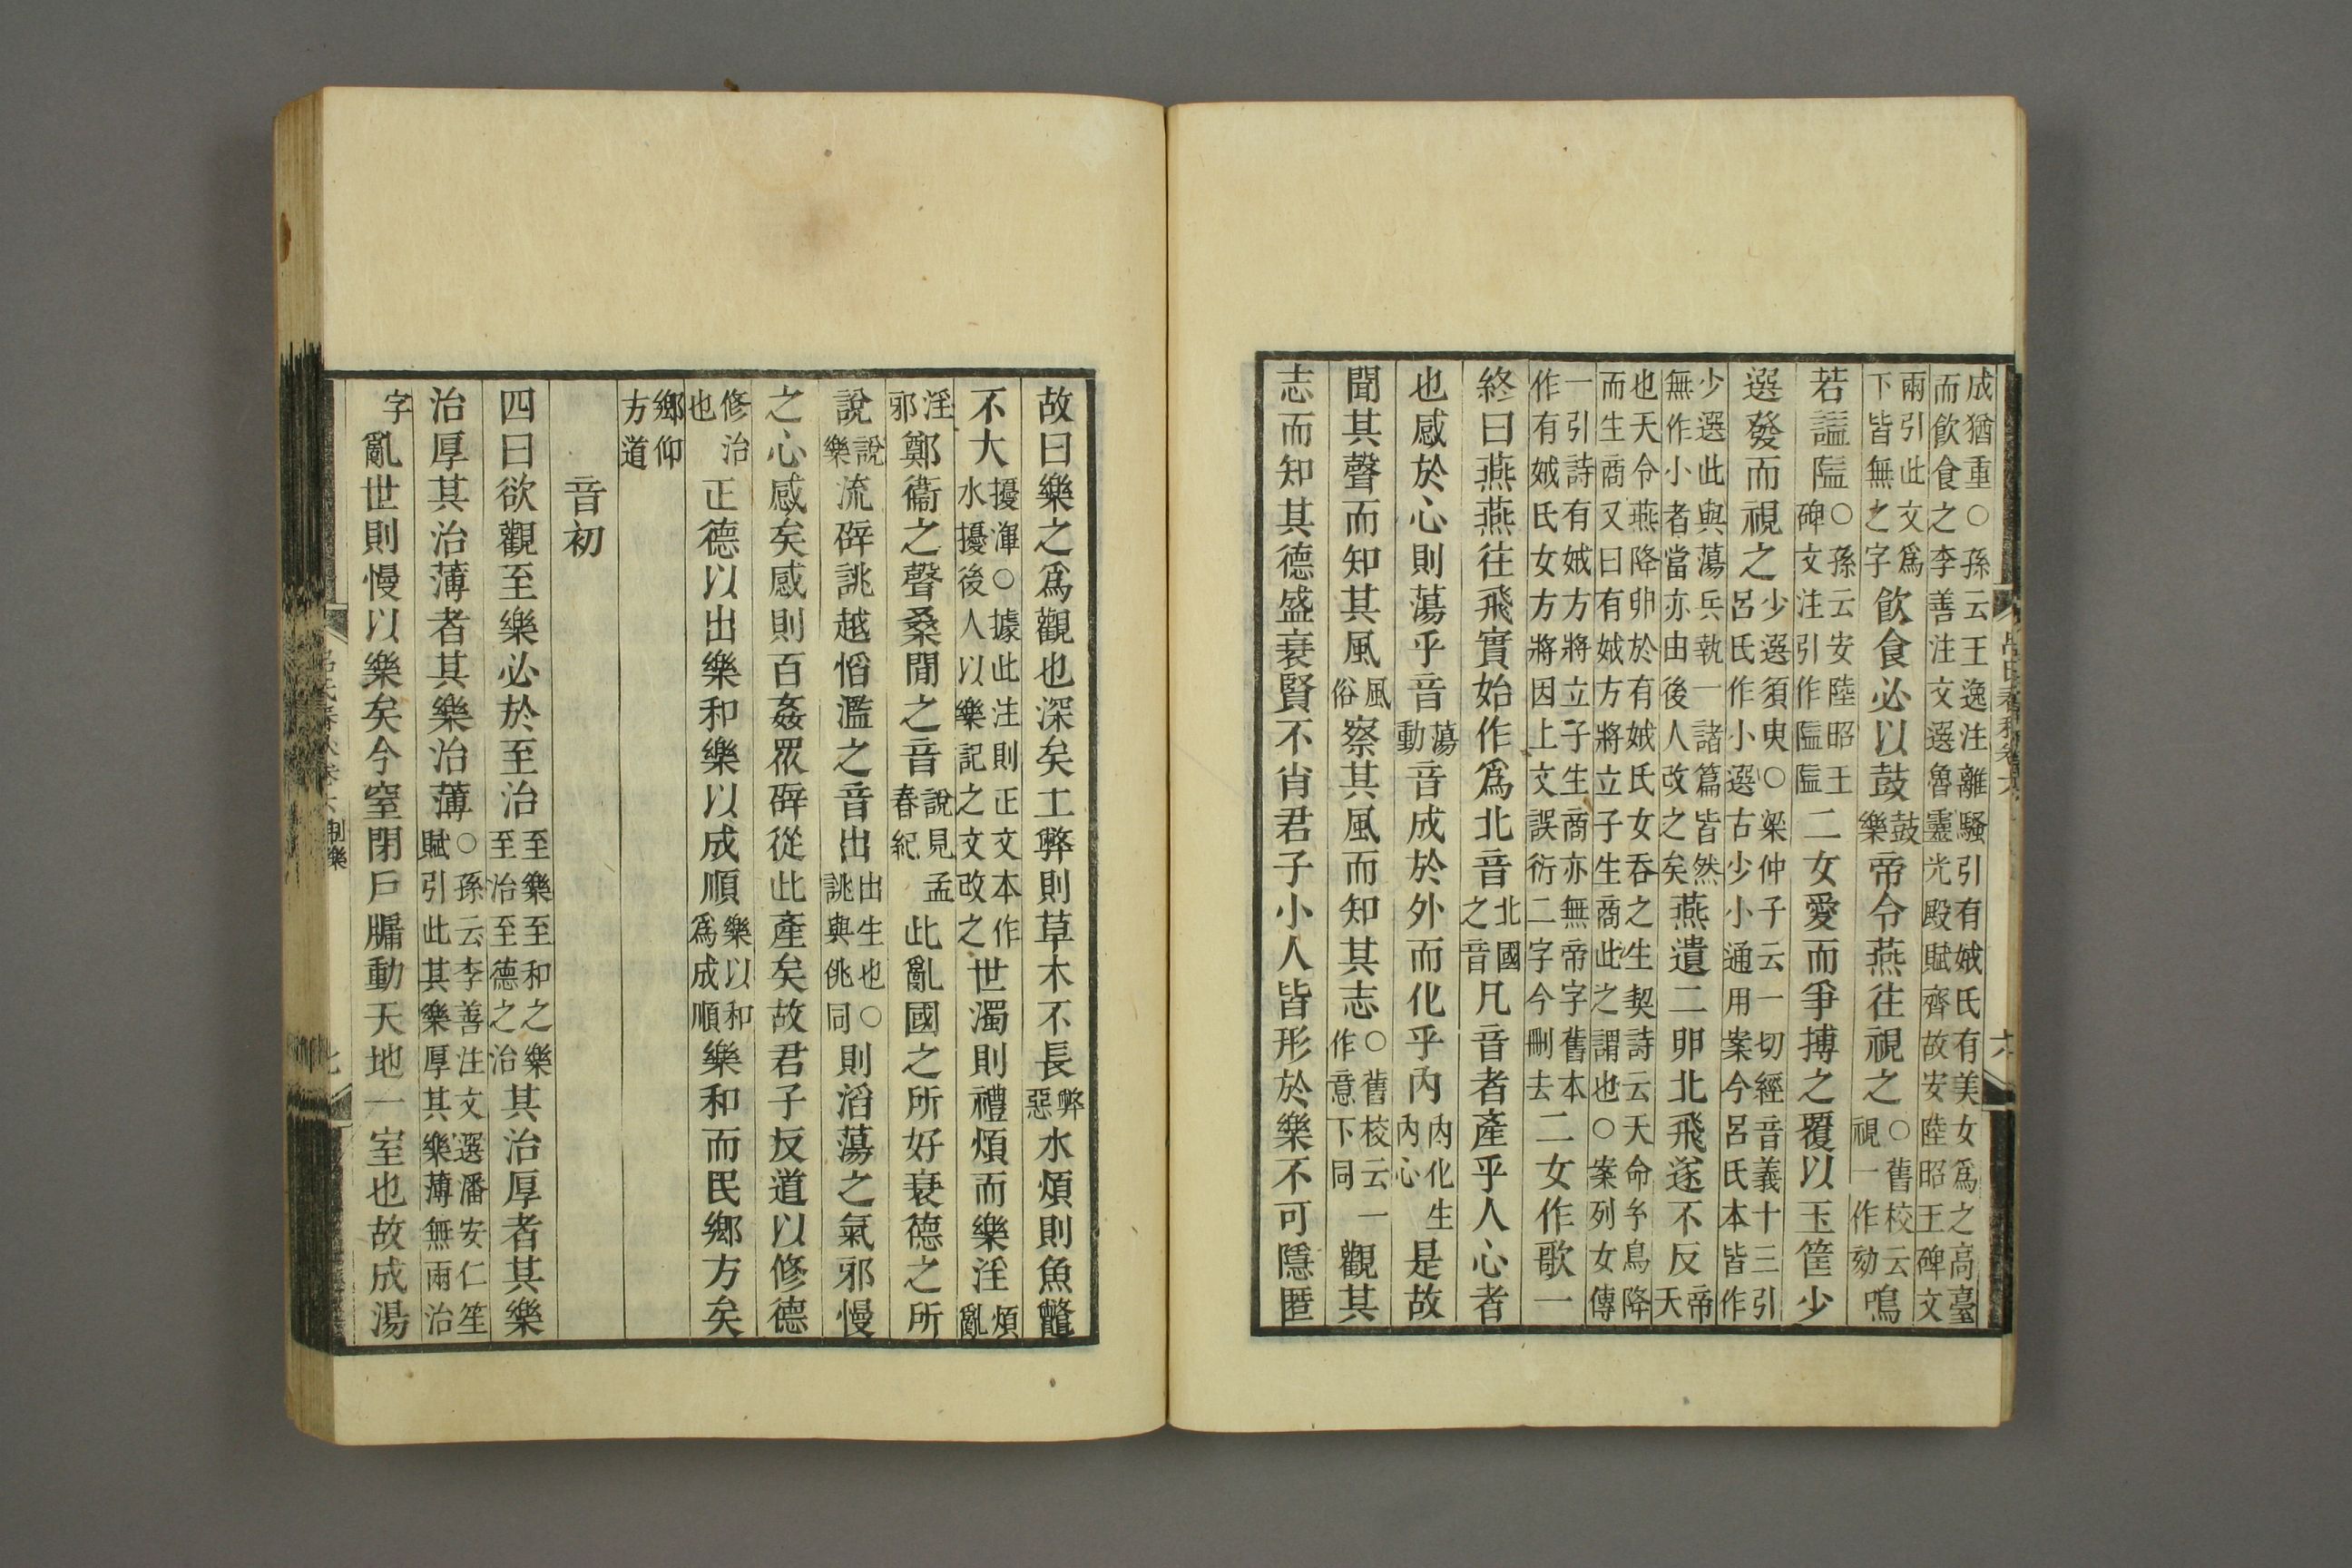 成猶重○孫云王逸注離騷引有娀氏有美女爲之高臺而飲食之李善注文選魯靈光殿賦齊故安陸昭王碑文
兩引此文爲下皆無之字飲食必以鼓鼓樂帝令燕往視之○舊校云視一作劾鳴
若謚隘○孫云安陸昭王碑文注引作隘隘二女愛而爭搏之覆以玉筐少
選發而視之少選須臾○梁仲子云一切經音義十三引呂氏作小選古少小通用案今呂氏本皆作
少選此與蕩兵執一諸篇皆然無作小者當亦由後人改之矣燕遺二卵北飛遂不反帝天
也天令燕降卵於有娀氏女吞之生契詩云天命𤣥鳥降而生商又曰有娀方將立子生商此之謂也○案列女傳
一引詩有娀方將立子生商亦無帝字舊本作有娀氏女方將因上文誤衍二字今刪去二女作歌一
終曰燕燕往飛實始作爲北音北國之音凡音者產乎人心者
也感於心則蕩乎音蕩動音成於外而化乎內內化生內心是故
聞其聲而知其風風俗察其風而知其志○舊校云一作意下同觀其
志而知其德盛衰賢不肖君子小人皆形於樂不可隱匿
呂氏春秋卷六
六
故曰樂之爲觀也深矣土弊則草木不長弊惡水煩則魚鼈
不大擾渾○據此注則正文本作水擾後人以樂記之文改之世濁則禮煩而樂淫煩亂
淫邪鄭衞之聲桑閒之音說見孟春紀此亂國之所好衰德之所
說說樂流辟誂越慆濫之音出出生也○誂與佻同則滔蕩之氣邪慢
之心感矣感則百姦眾辟從此產矣故君子反道以修德
修治也正德以出樂和樂以成順樂以和爲成順樂和而民鄉方矣
鄉仰方道
音初
四曰欲觀至樂必於至治至樂至和之樂至治至德之治其治厚者其樂
治厚其治薄者其樂治薄○孫云李善注文選潘安仁笙賦引此其樂厚其樂薄無兩治
字亂世則慢以樂矣今窒閉戶牖動天地一室也故成湯
呂氏春秋卷六
制樂
七